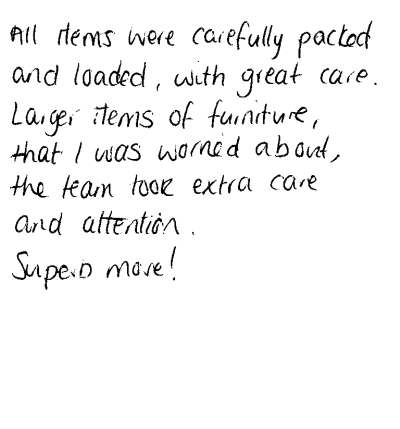 All items were carefully packed
and loaded, with great care.
Larger items of furniture,
that I was worried about,
the team took extra care
and attention.
Superb move!